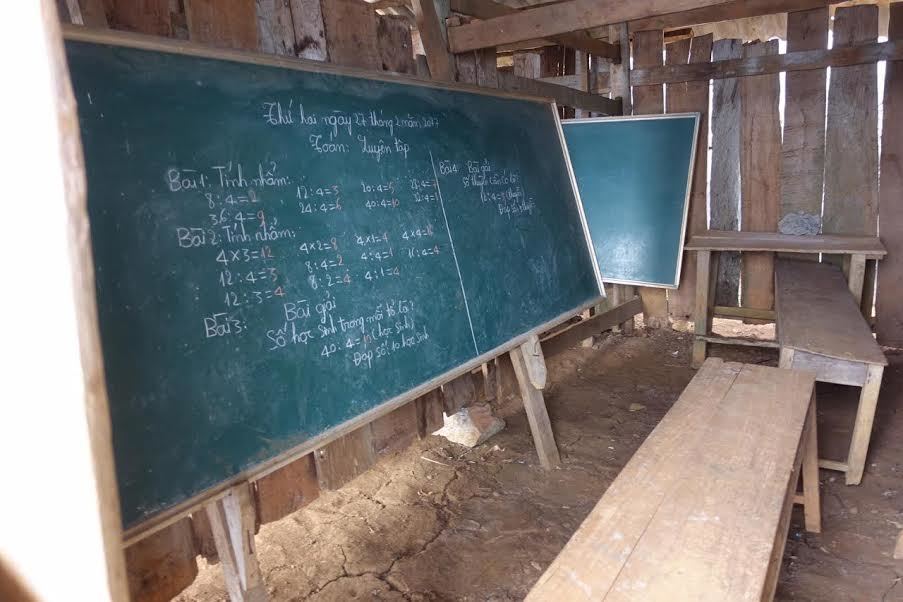 Thứ hai ngày 27 tháng 2 năm 2017
Toán: Luyện tập
Bài 1: Tính nhẩm:
8:4=2 12:4=3 20:4=5
36:4=9 24:4=6 40:4=10
Bài 2: Tính nhẩm:
4×3=12 4×2=8 4×1=4 4×4=16
12:4=3 8:4=2 4:4=1 16:4=4
12:3=4 8:2=4 4:1=4
Bài 3: Bài giải
Số học sinh trong mỗi tổ là:
40:4=10 (học sinh)
Đáp số: 10 học sinh
Bài 4: Bài giải
Số thuyền cần có là: